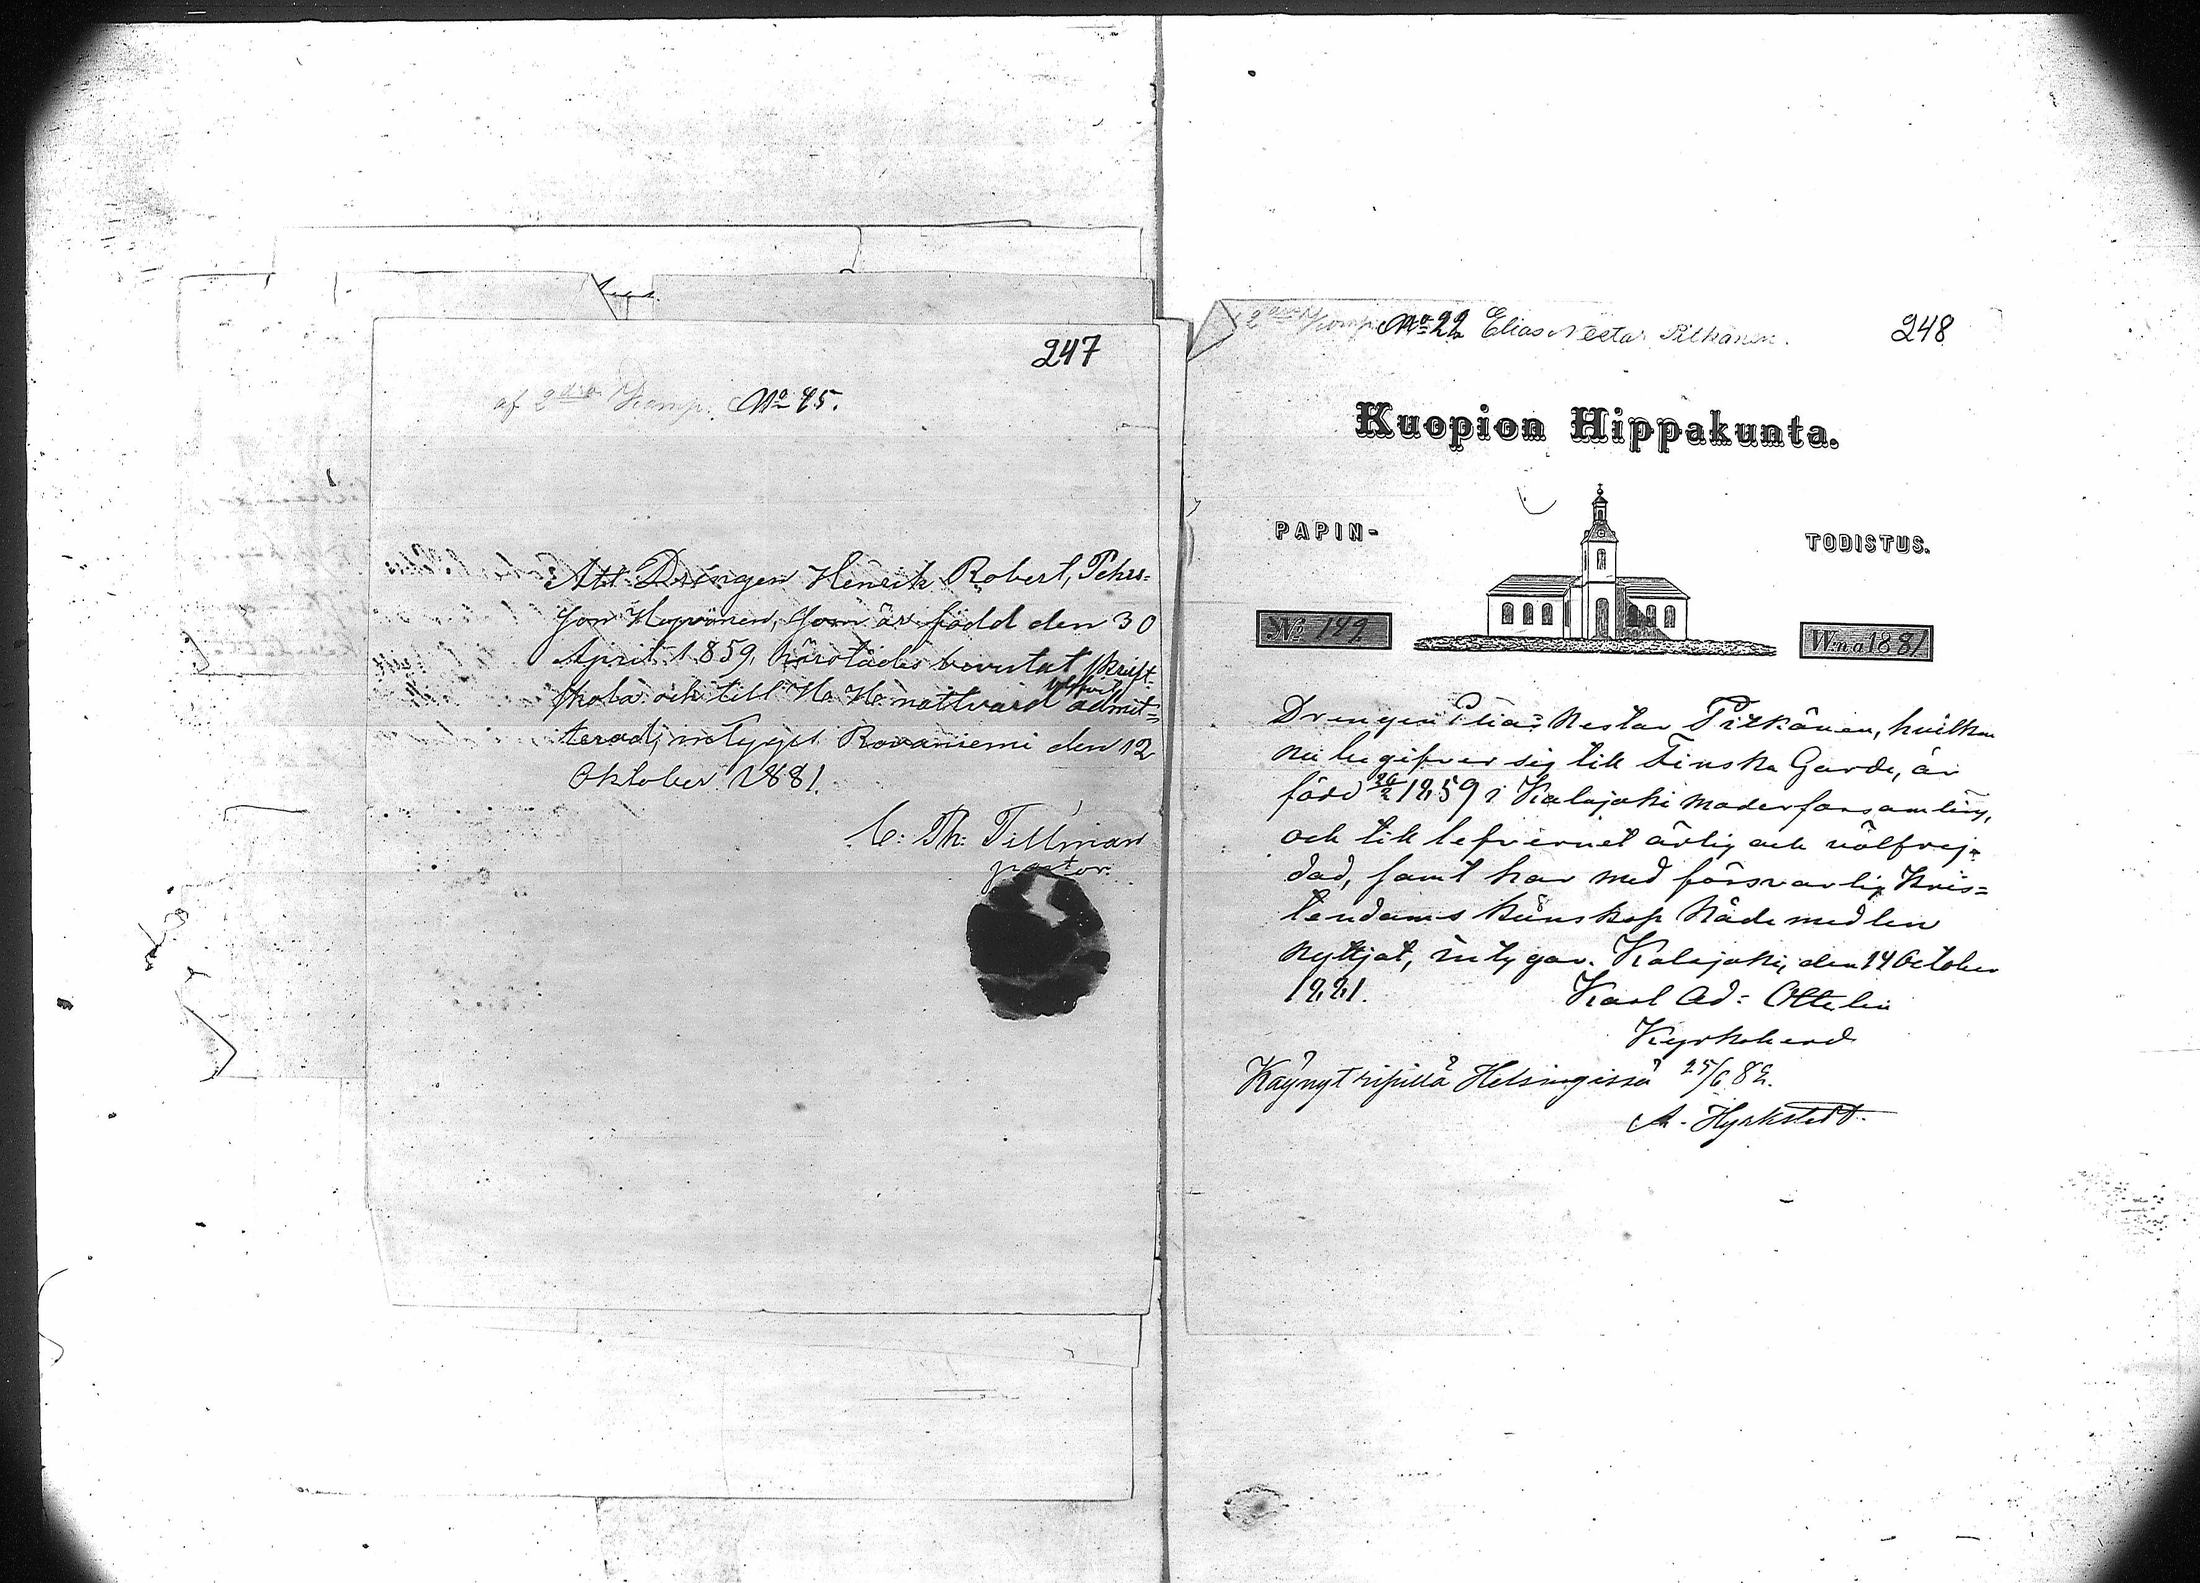 247
af 2dra Komp. No 95.
Att Drengen Henrik Robert, Pehrs-
son Hyvönen, som är född den 30
April 1859, härstädes bevistat skrift-
skola och till H. H. nattvard admit-
terad, intygas Rovaniemi den 12
Oktober 1881.
C. Th. Tillman
pastor.
2dra Komp. No 22 Elias Nestar Pitkänen.
248
Kuopion Hippakunta.
PAPIN- TODISTUS.
No 149 W:na 1881
Drengen Elias Nestar Pitkänen, hvilken
nu begifver sig till Finska Garde, är
född 26/2 1859 i Kalajoki moderförsamling,
och till lefvernet ärlig och välfrej-
dad, samt har med försvarlig Kris-
tendoms kunskap Nådemedlen
nyttjat, intygar. Kalajoki, den 14 October
1881.
Karl Ad: Ottelin
Kyrkoherde
Käynyt ripillä Helsingissä 25/6 82.
A. Hyrkstedt.